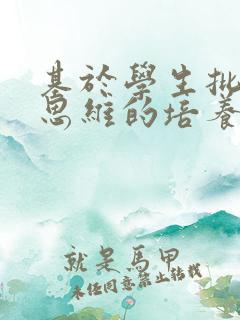 基於學生批
思維的培養
就是馬甲
未经同意禁止转载